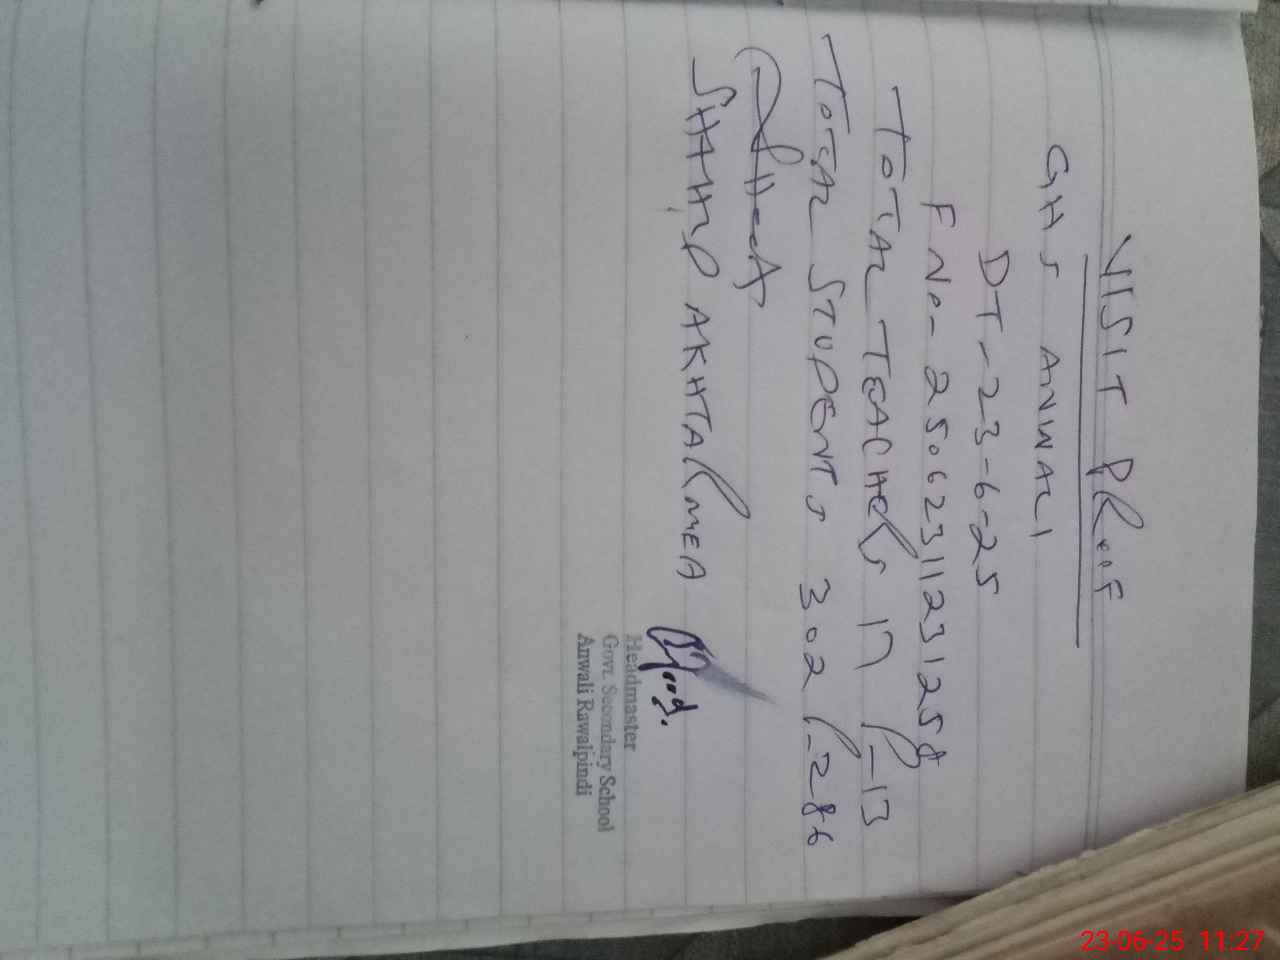 VISIT PROOF
GHS ANWALI
DT-23-6-25
F No- 25062311231258
TOTAL TEACHERS 17 P-13
TOTAL STUDENTS 302 P-286
SHAHID AKHTAR MEA
Headmaster
Govt. Secondary School
Anwali Rawalpindi
23-06-25 11:27